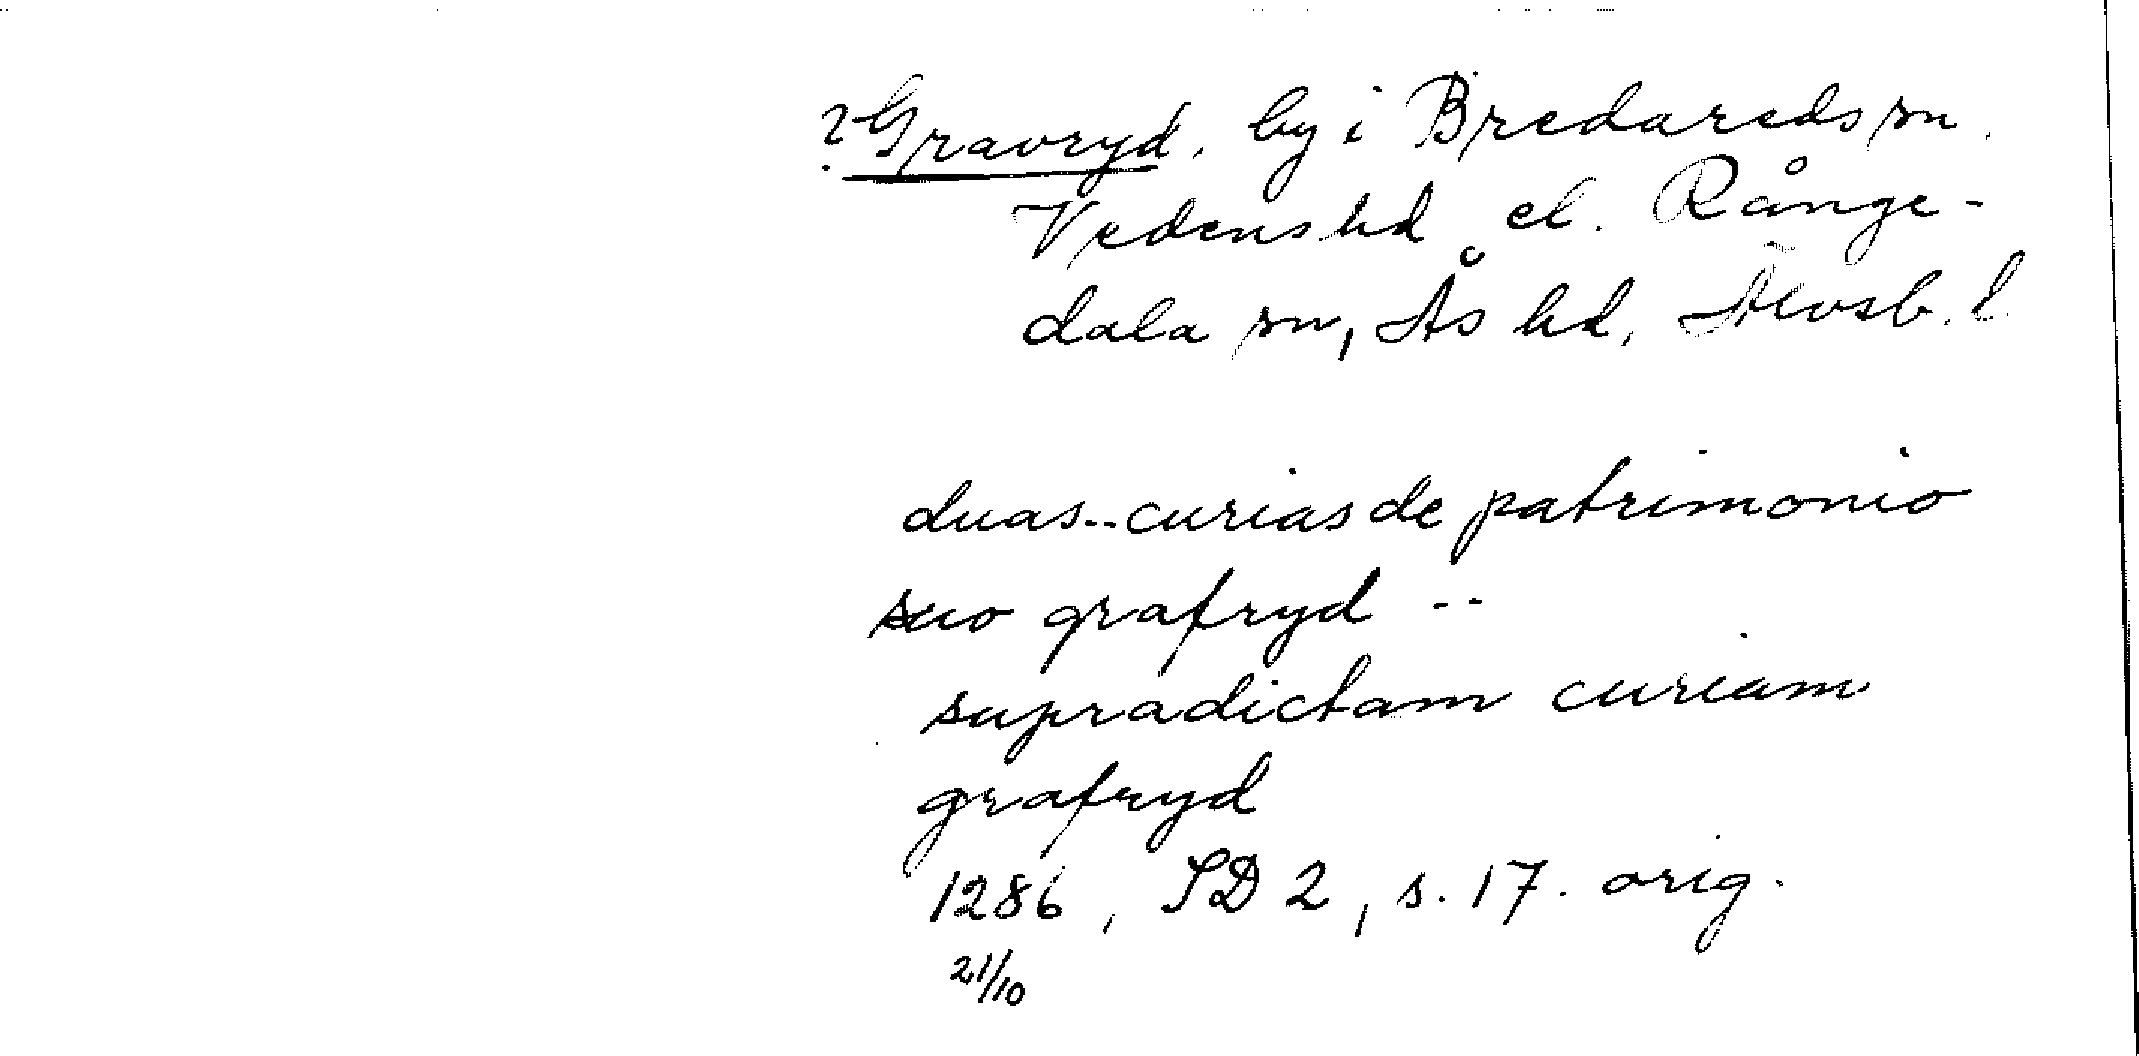 ?Gravryd, by i Bredareds sn.
Vedens hd el. Rånge-
dala sn, Ås hd, Älvsb. l.
duas.. curias de patrimonio
suo grafryd --
supradictam curiam
grafryd
1286, SD 2, s. 17. orig.
21/10